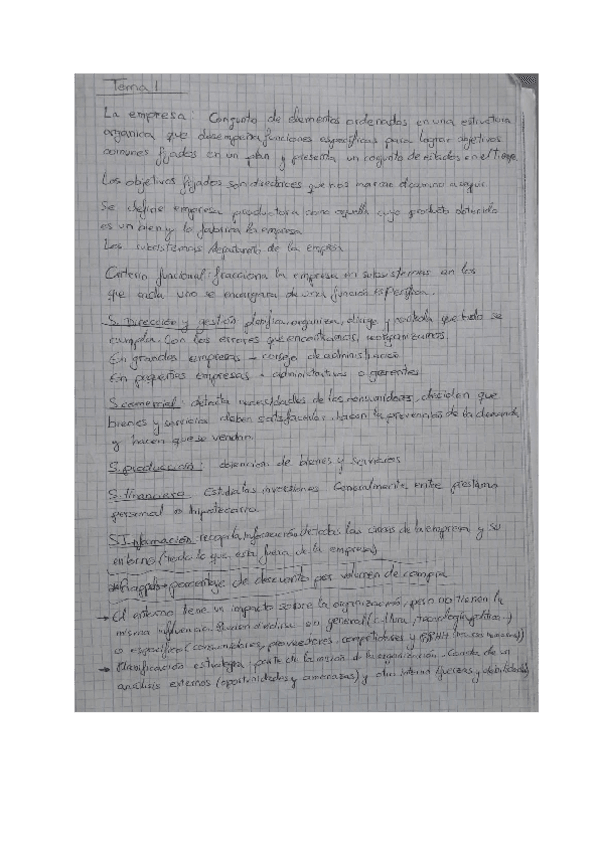 Tema 1
La empresa: Conjunto de elementos ordenados en una estructura
organica que desempeña funciones especificas para lograr objetivos
comunes fijados en un plan y presenta un conjunto de estados en el
Los objetivos fijados son directrices que nos marcan el camino a seguir.
Se define empresa productora como aquella cuyo producto obtenido
es un bien y lo fabrica la empresa
Los subsistemas/departamentos de la empresa
Criterio funcional: fracciona la empresa en subsistemas en los
que cada uno se encargara de una función especifica.
S. Dirección y gestión planifica, organiza, dirige y controla que todo se
cumpla. Con los errores que encontramos, reorganizamos.
En grandes empresas - consejo de administracion
En pequeñas empresas - administrativos o gerentes
S. comercial: detecta necesidades de los consumidores, deciden que
bienes y servicios deben satisfacerlas, hacen las previsiones de la demanda
y hacen que se vendan.
S. producción: obtencion de bienes y servicios
S. financiero Estudia las inversiones Generalmente, entre prestamo
personal o hipotecario.
S. Información recopila información de todas las areas de la empresa y su
entorno (todo lo que esta fuera de la empresa)
porcentaje de descuento por volumen de compra
→ El entorno tiene un impacto sobre la organización, pero no tienen la
misma influencia. en general (cultura, tecnología, politica..)
o especifico (consumidores, proveedores, competidores y
→ Planificación estrategia: parte de la misión de la organización. Consta de un
analisis externos (oportunidades y amenazas) y otro interno (fuerzas y debilidades)